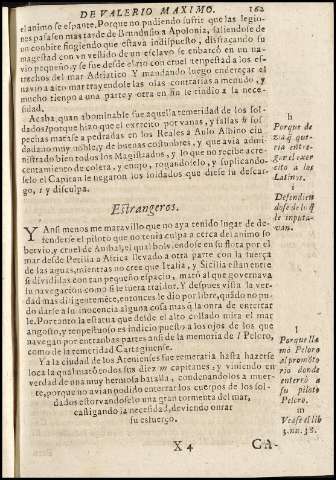 DE VALERIO MAXIMO. 162
el animo se espante. Porque no pudiendo sufrir que las legio-
nes passassen mas tarde de Brundusio a Apolonia, saliendose de
vn conbite fingiendo que estava indispuesto, disfraçando su
magestad con vn vestido de vn esclavo se enbarcò en vn na-
vio pequeño, y se fue desde el rio con cruel tenpestad a los es-
trechos del mar Adriatico. Y mandando luego endereçar el
navio a alto mar trayendole las olas contrarias a menudo, y
mucho tienpo a una parte y otra en fin se rindio a la nece-
sidad.
Acaba, quan abominable fue aquella temeridad de los sol-
dados? porque hizo que el exercito por vanas, y falsas sos-
pechas matase a pedradas en los Reales a Aulo Albino ciu-
dadano muy noble, y de buenas costunbres, y que avia admi-
nistrado bien todos los Magistrados, y lo que no recibe acre-
centamiento de colera, y enojo, rogandoselo, y suplicando-
selo el Capitan le negaron los soldados que diese su descar-
go, y disculpa.
Estrangeros.
Y Ansi menos me maravillo que no aya tenido lugar de de-
fenderse el piloto que no tenia culpa a cerca del animo so-
bervio, y cruel de Anibal, el qual bolviendose en su flota por el
mar desde Petilia a Africa llevado a otra parte con la fuerça
de las aguas, mientras no cree que Italia, y Sicilia estan entre
si divididas con tan pequeño espacio, matò al que governava
su navegacion como si le fuera traidor. Y despues vista la ver-
dad mas diligentemente, entonces le dio por libre, quando no pu-
do darle a su inocencia alguna cosa mas que la onra de enterrar
le. Por tanto la estatua que desde el alto collado mira el mar
angosto, y tenpestuoso es indicio puesto a los ojos de los que
navegan por entranbas partes ansi de la memoria de l Peloro,
como de la temeridad Cartaginense.
Y a la ciudad de los Atenienses fue temeraria hasta hazerse
loca la qual matò todos sus diez m capitanes, y viniendo en
verdad de una muy hermosa batalla, condenandolos a muer-
te, porque no avian podido enterrar los cuerpos de los sol-
dados estorvandoselo una gran tormenta del mar,
castigando la necesidad, deviendo onrar
su esfuerço.
h
Porque de
zia que que-
ria entre-
gar el exer
cito a los
Latinos.
i
Defendien
dose de lo q̃
le inputa-
van.
l
Porque lla
mò Peloro
al promõto
rio donde
enterrò a
su piloto
Peloro.
m
Vease el lib
3. nu. 38.
X 4
CA-